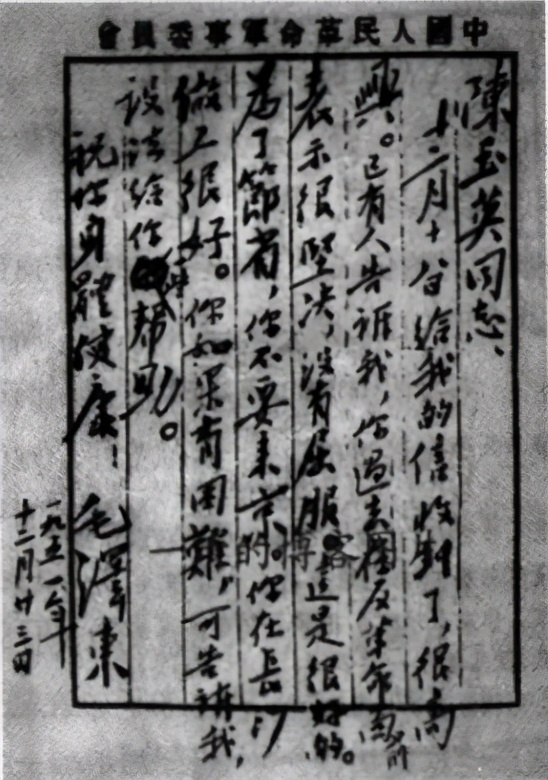 中國人民革命軍事委員會
陳玉英同志、
十二月十八日給我的信收到了,很高
興。已有人告訴我,你過去在反革命面前
表示很堅决,沒有屈服,這是很好的。
為了節省,你不要来京。你在長沙
做工很好。你如果有困難,可告訴我,
設法給你一些帮助。
祝你身體健康!
毛澤東
一九五一年
十二月廿三日
的博客